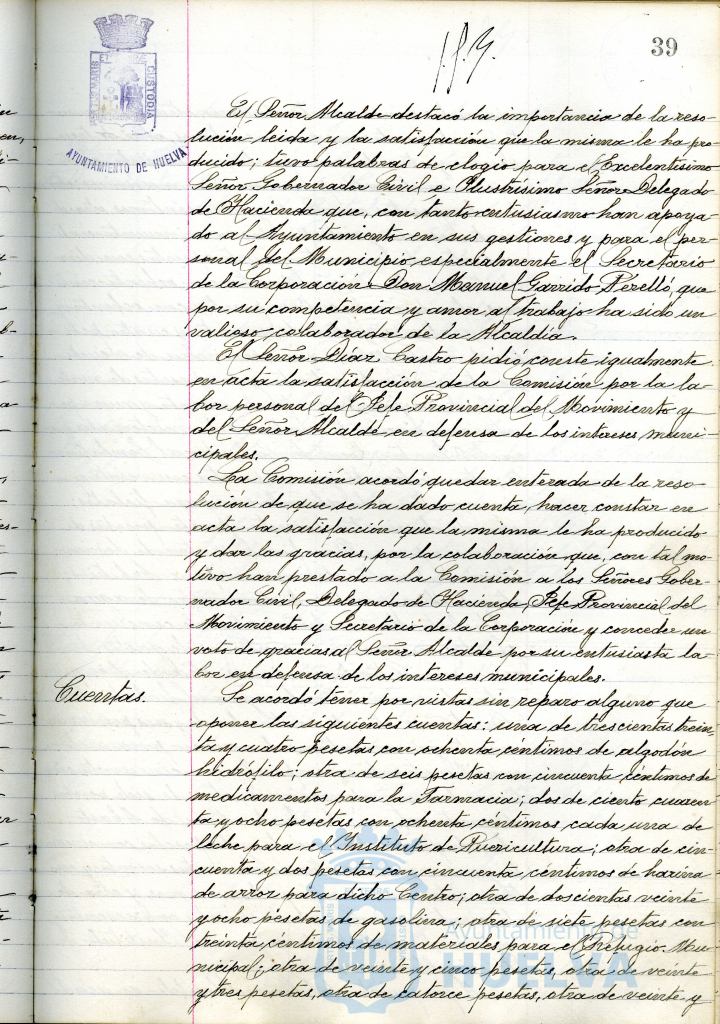 39
AYUNTAMIENTO DE HUELVA
CUSTODIA
El Señor Alcalde destacó la importancia de la reso-
lución leida y la satisfacción que la misma le ha pro-
ducido; tuvo palabras de elogio para el Excelentísimo
Señor Gobernador Civil e Ilustrísimo Señor Delegado
de Hacienda que, con tanto entusiasmo han apoya-
do al Ayuntamiento en sus gestiones y para el per-
sonal del Municipio, especialmente el Secretario
de la Corporación Don Manuel Garrido Perelló, que
por su competencia y amor al trabajo ha sido un
valioso colaborador de la Alcaldía.
El Señor Díaz Castro pidió conste igualmente
en acta la satisfacción de la Comisión por la la-
bor personal del Jefe Provincial del Movimiento y
del Señor Alcalde en defensa de los intereses muni-
cipales.
La Comisión acordó quedar enterada de la reso-
lución de que se ha dado cuenta, hacer constar en
acta la satisfacción que la misma le ha producido
y dar las gracias, por la colaboración que, con tal mo-
tivo han prestado a la Comisión a los Señores Gober-
nador Civil, Delegado de Hacienda, Jefe Provincial del
Movimiento y Secretario de la Corporación y conceder un
voto de gracias al Señor Alcalde por su entusiasta la-
bor en defensa de los intereses municipales.
Cuentas.
Se acordó tener por vistas sin reparo alguno que
oponer las siguientes cuentas: una de trescientas trein
ta y cuatro pesetas con ochenta céntimos de algodón
hidrófilo; otra de seis pesetas con cincuenta céntimos de
medicamentos para la Farmacia; dos de ciento cuaren-
ta y ocho pesetas con ochenta céntimos cada una de
leche para el Instituto de Puericultura; otra de cin-
cuenta y dos pesetas con cincuenta céntimos de harina
de arroz para dicho Centro; otra de doscientas veinte
y ocho pesetas de gasolina; otra de siete pesetas con
treinta céntimos de materiales para el Refugio Mu-
nicipal; otra de veinte y cinco pesetas, otra de veinte
y tres pesetas, otra de catorce pesetas, otra de veinte y
Ayuntamiento de
HUELVA